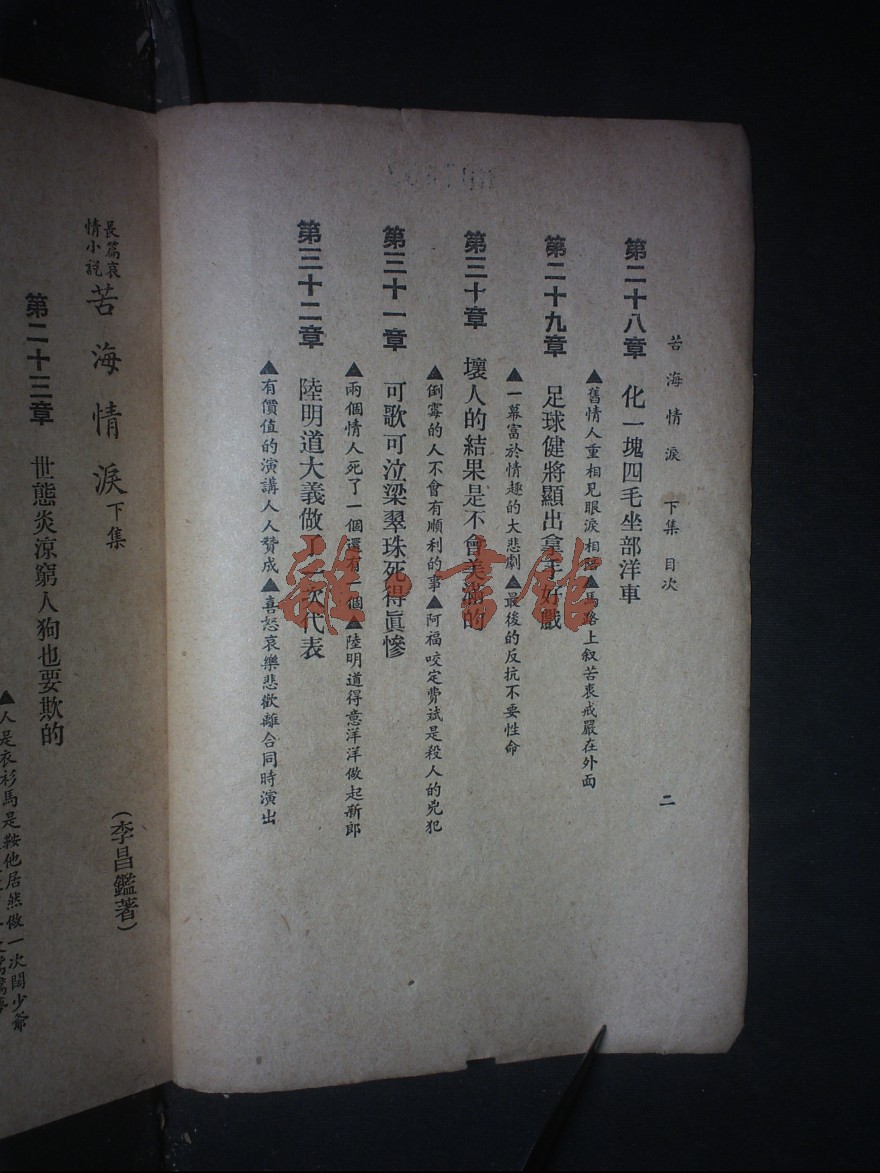 苦海情淚 下集 目次
二
第二十八章 化一塊四毛坐部洋車
▲舊情人重相見眼淚相陪▲馬路上叙苦衷戒嚴在外面
第二十九章 足球健將顯出拿手好戲
▲一幕富於情趣的大悲劇▲最後的反抗不要性命
第三十章 壞人的結果是不會美滿的
▲倒霉的人不會有順利的事▲阿福咬定費斌是殺人的兇犯
第三十一章 可歌可泣梁翠珠死得眞慘
▲兩個情人死了一個還有一個▲陸明道得意洋洋做起新郎
第三十二章 陸明道大義做了一次代表
▲有價值的演講人人贊成▲喜怒哀樂悲歡離合同時演出
雜·書館
長篇哀情小說 苦海情淚 下集
(李昌鑑著)
第二十三章 世態炎涼窮人狗也要欺的
▲人是衣衫馬是鞍他居然做一次闊少爺